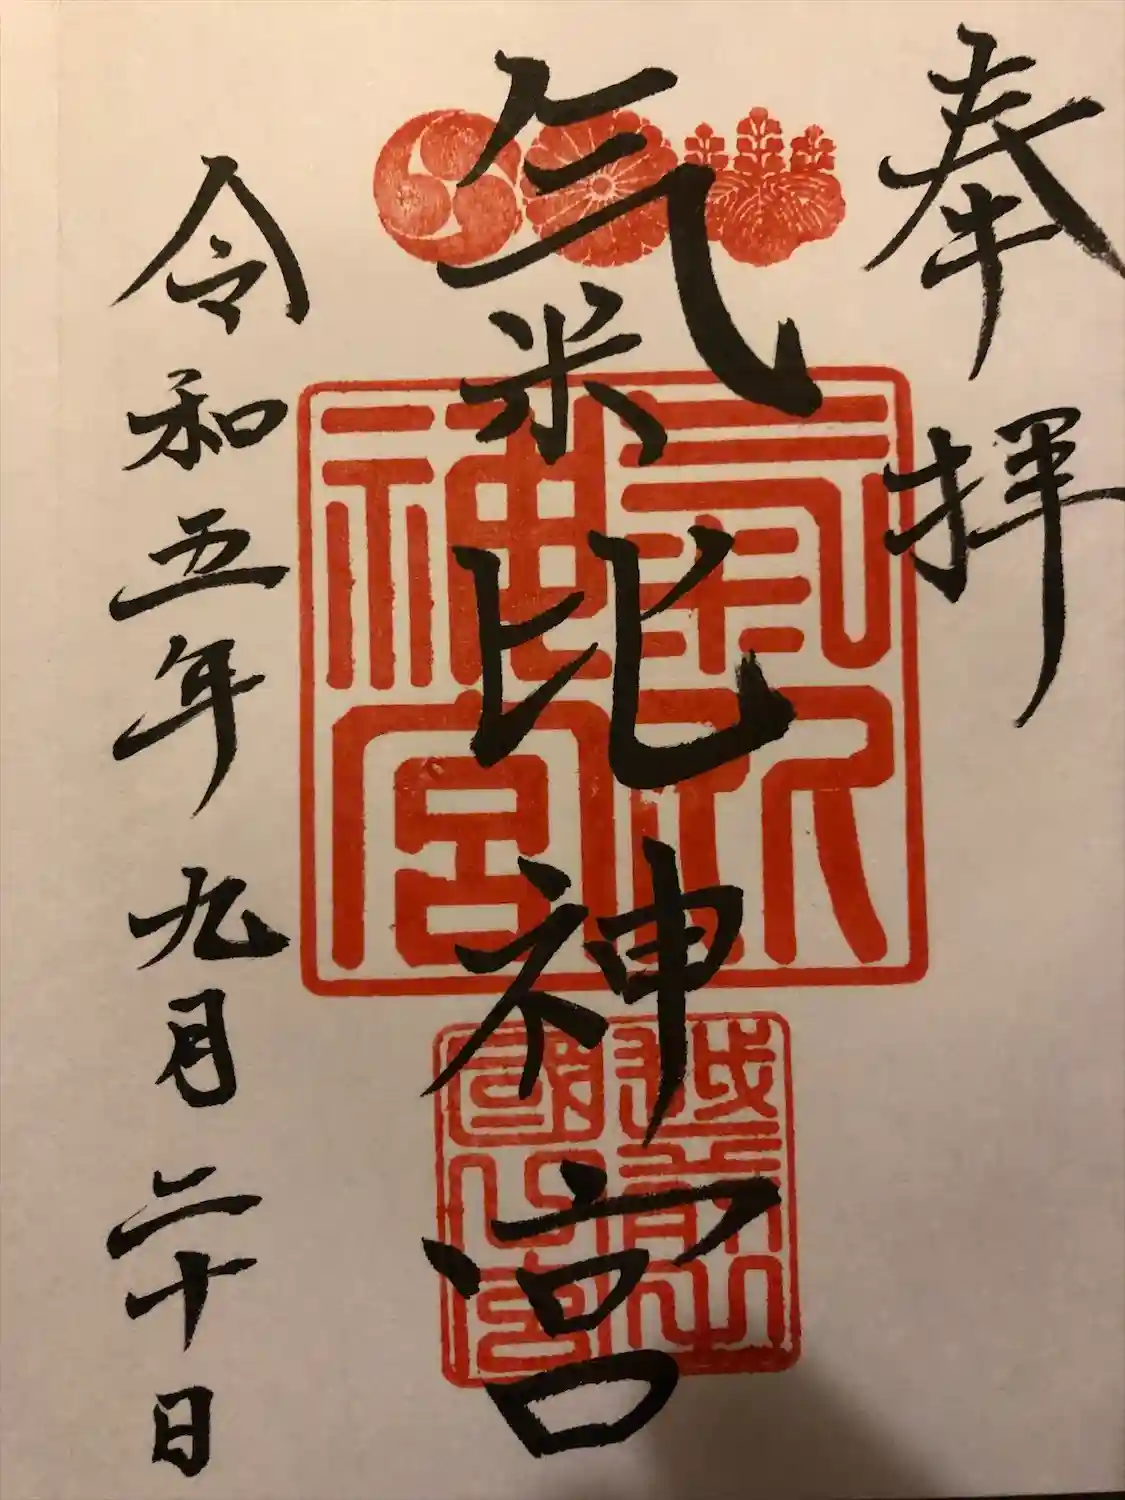 奉拝
氣比神宮
氣比神宮
越前國一宮
令和五年九月二十日